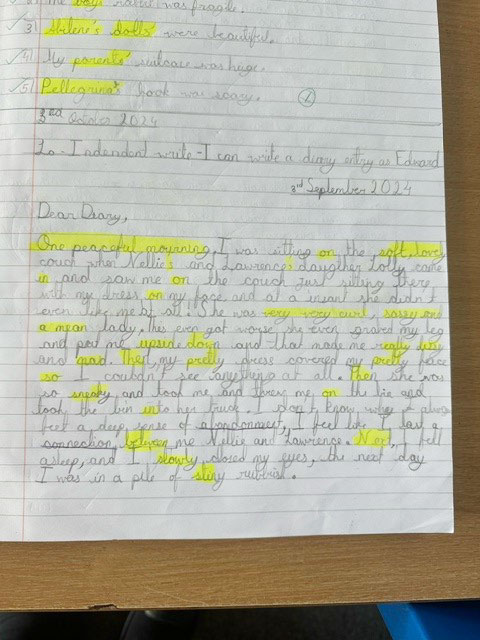 2) The boys rabbit was fragile.
3) Abilene's dolls were beautiful.
4) My parents' suitcase was huge.
5) Pellegrina's book was scary.
3rd October 2024
Lo - Indendant write - I can write a diary entry as Edward
3rd September 2024
Dear Diary,
One peaceful mourning, I was sitting on the soft, lovely
couch when Nellie's and Lawrence's daughter Lolly came
in and saw me on the couch just sitting there
with my dress on my face and at a insant she didn't
even like me at all. She was very very cruel, sassy and
a mean lady. This even got worse she even grabed my leg
and put me upside down and that made me really
and mad. Then, my pretty dress covered my pretty face
so I couldn't see anything at all. Then she was
so sneaky and took me and threw me on the bin and
took the bin into her truck. I don't know why I always
feel a deep sense of abandonment, I feel like I lost a
connection, between me Nellie and Lawrence. Next, I fell
asleep, and I slowly closed my eyes, the next day
I was in a pile of stinky rubbish.